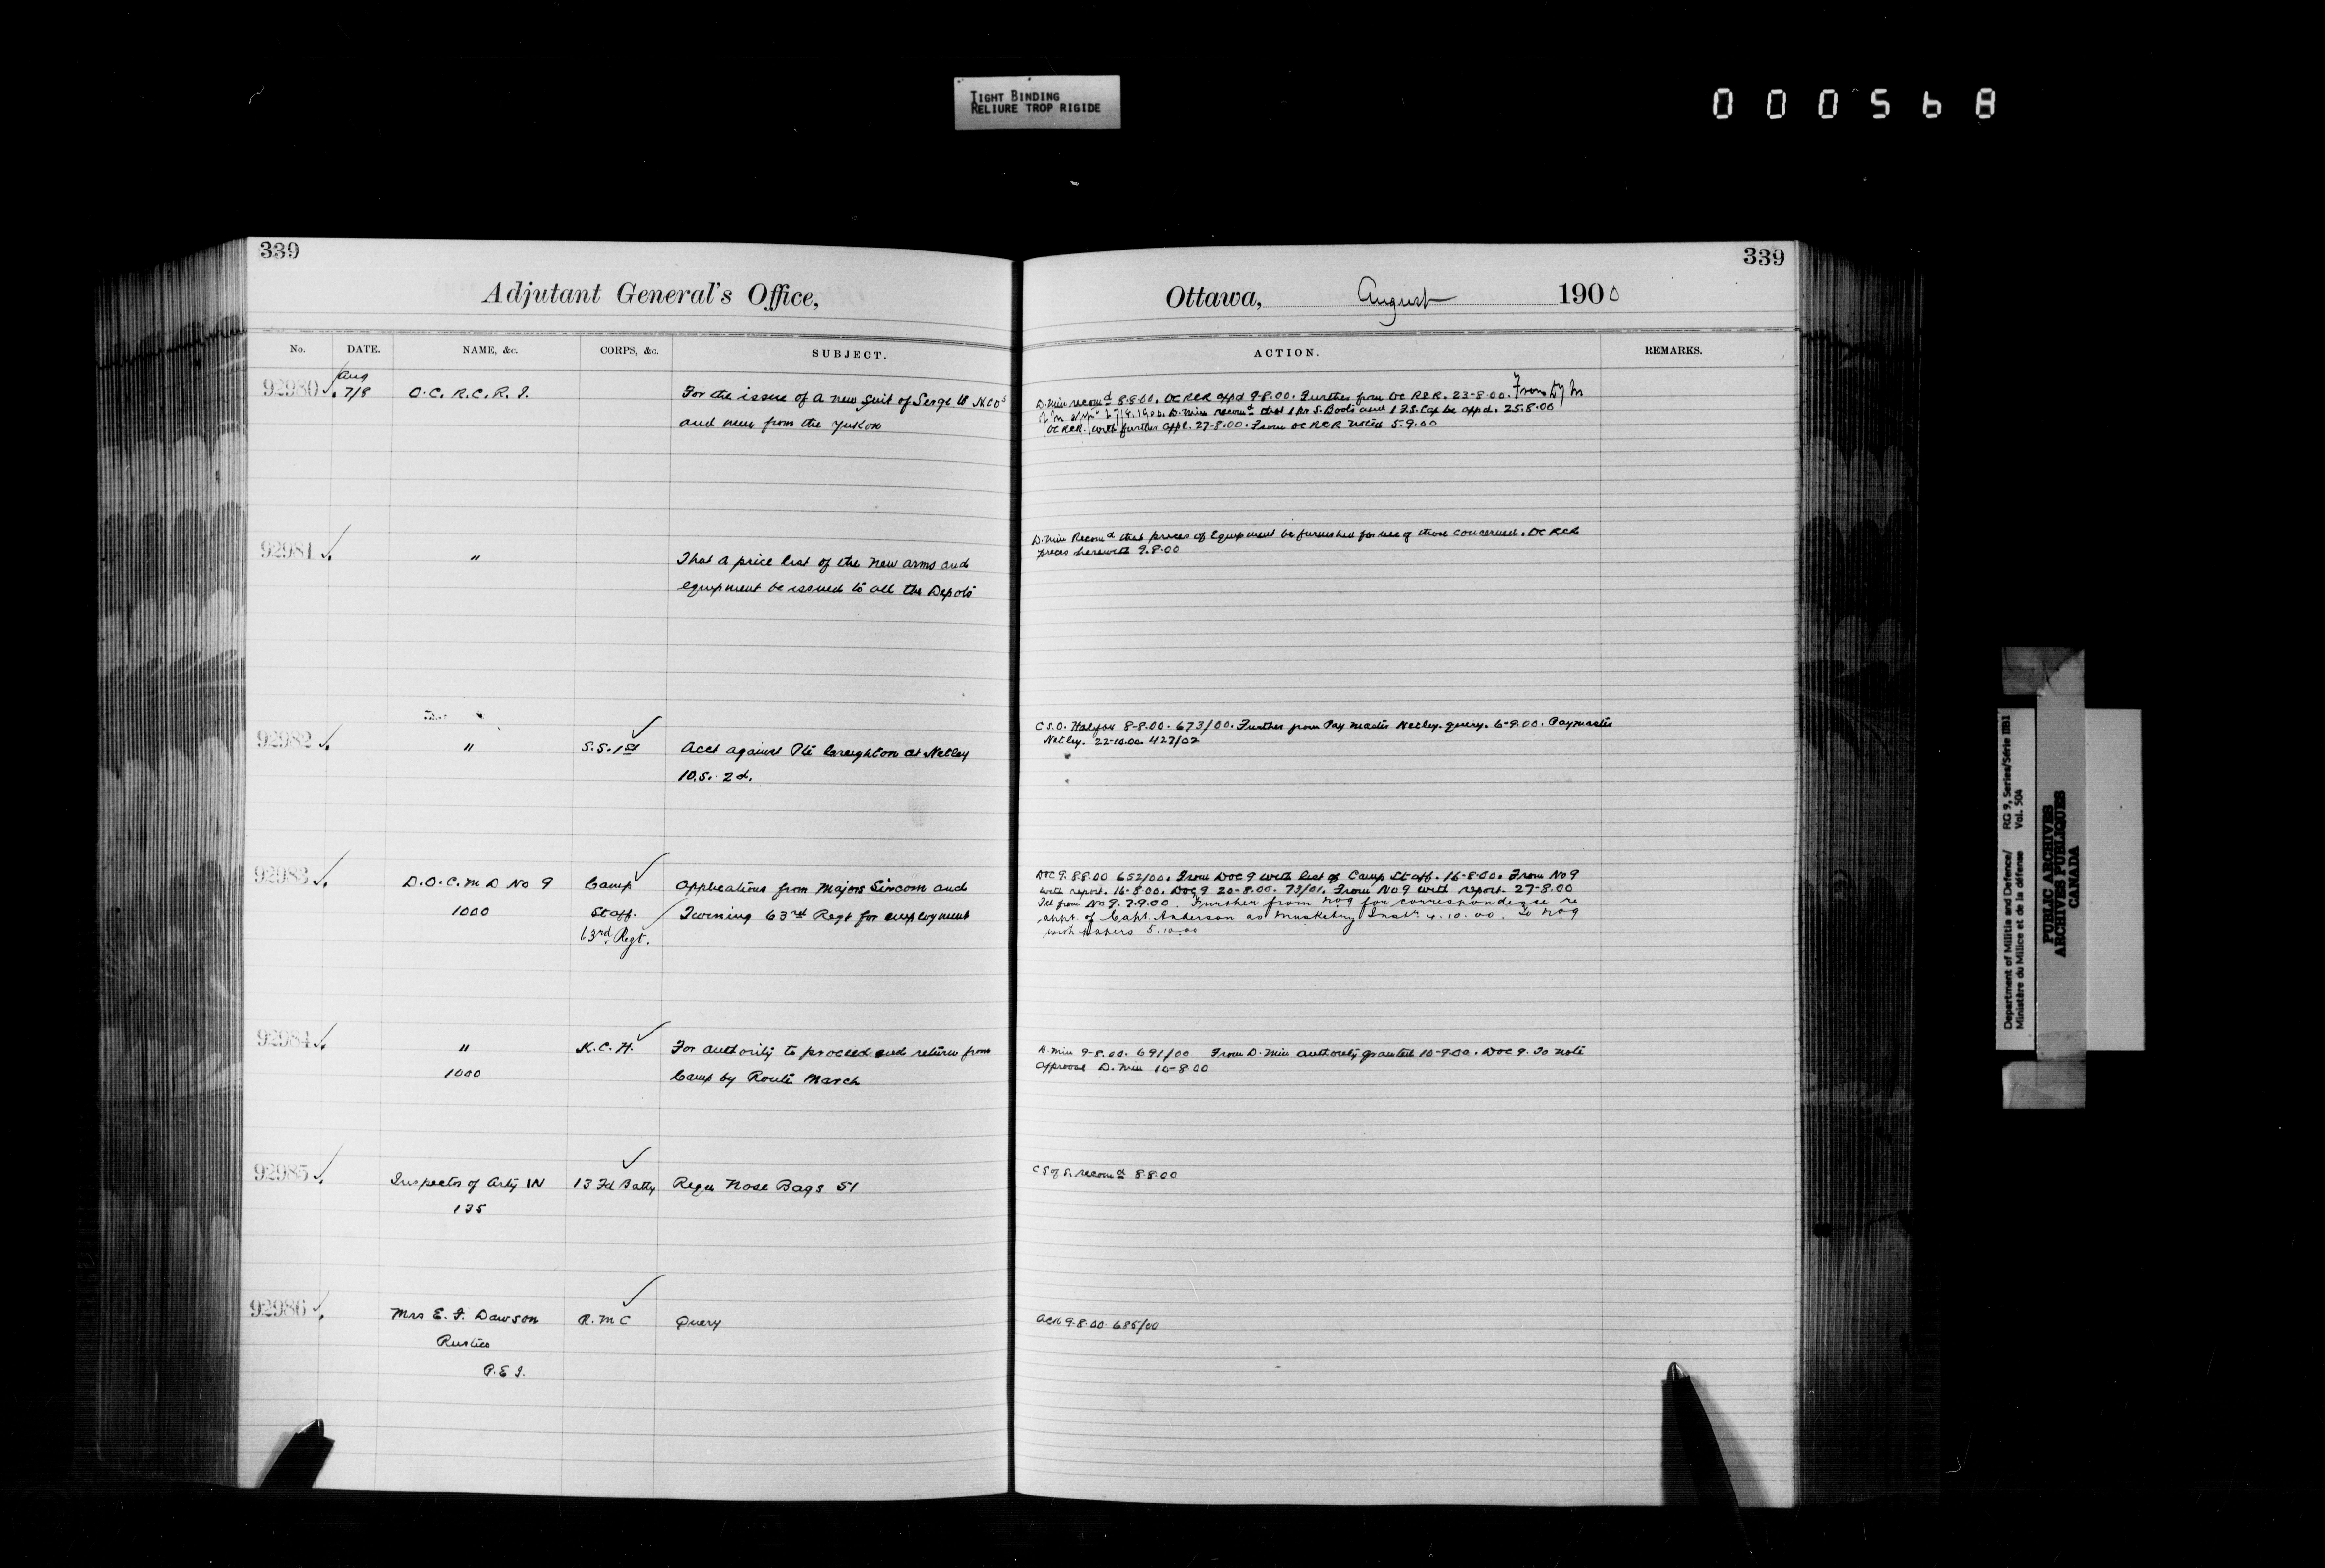 TIGHT BINDING
RELIURE TROP RIGIDE
000568
339
Adjutant General's Office,
No. DATE. NAME, &c. CORPS, &c. SUBJECT.
92980 Aug 7/8 O.C. R.C.R.I. For the issue of a new suit of Serge to NCOs
and men from the Yukon
92981 " That a price list of the new arms and
equipment be issued to all the Depots
92982 " S.S. 1st Acct against Pte Creighton at Netley
10.s. 2d.
92983 D.O.C. M D No 9 Camp Applications from Majors Sircom and
1000 Staff. Twining 63rd Regt for employment
63rd Regt.
92984 " K.C.H. For authority to proceed and return from
1000 Camp by Route March
92985 Inspector of Arty IN 13 Fd Batty Requ Nose Bags 51
135
92986 Mrs E. F. Dawson R.M.C Query
Rustico
P.E.I.
339
Ottawa, August 1900
ACTION. REMARKS.
D. Min recomd 8.8.00. OC RCR appd 9.8.00. Further from OC RCR. 23-8-00. From
D. Min recomd that 1 Pr S. Boots and 1 F.S. Cap be appd. 25.8.00
OC RCR. with further appl. 27-8.00. From OC RCR noted 5.9.00
D. Min Recomd that prices of Equipment be furnished for use of those concerned. OC RCR
prices herewith 9.8.00
C.S.O. Halifax 8-8.00. 673/00. Further from Pay master Netley. query. 6-9.00. Paymaster
Netley. 22-10.00. 427/02
DOC 9. 8.8.00 652/00. From DOC 9 with list of Camp Staff. 16-8.00. From No 9
with report. 16-8.00. DOC 9 20-8.00. 73/01. From No 9 with report. 27-8.00
Tel from No 9. 7.9.00. Further from No 9 for correspondence re
appt. of Capt. Anderson as Musketry Instr. 4.10.00. To No 9
with papers 5.10.00
D. Min 9-8.00. 691/00 From D. Min authority granted 10-8.00. DOC 9. To note
approval D. Min 10-8.00
C S of S. recomd 8.8.00
Ack 9.8.00 685/00
Department of Militia and Defence/ RG 9, Series/Série IIB1
Ministère du Milice et de la défense Vol. 504
PUBLIC ARCHIVES
ARCHIVES PUBLIQUES
CANADA